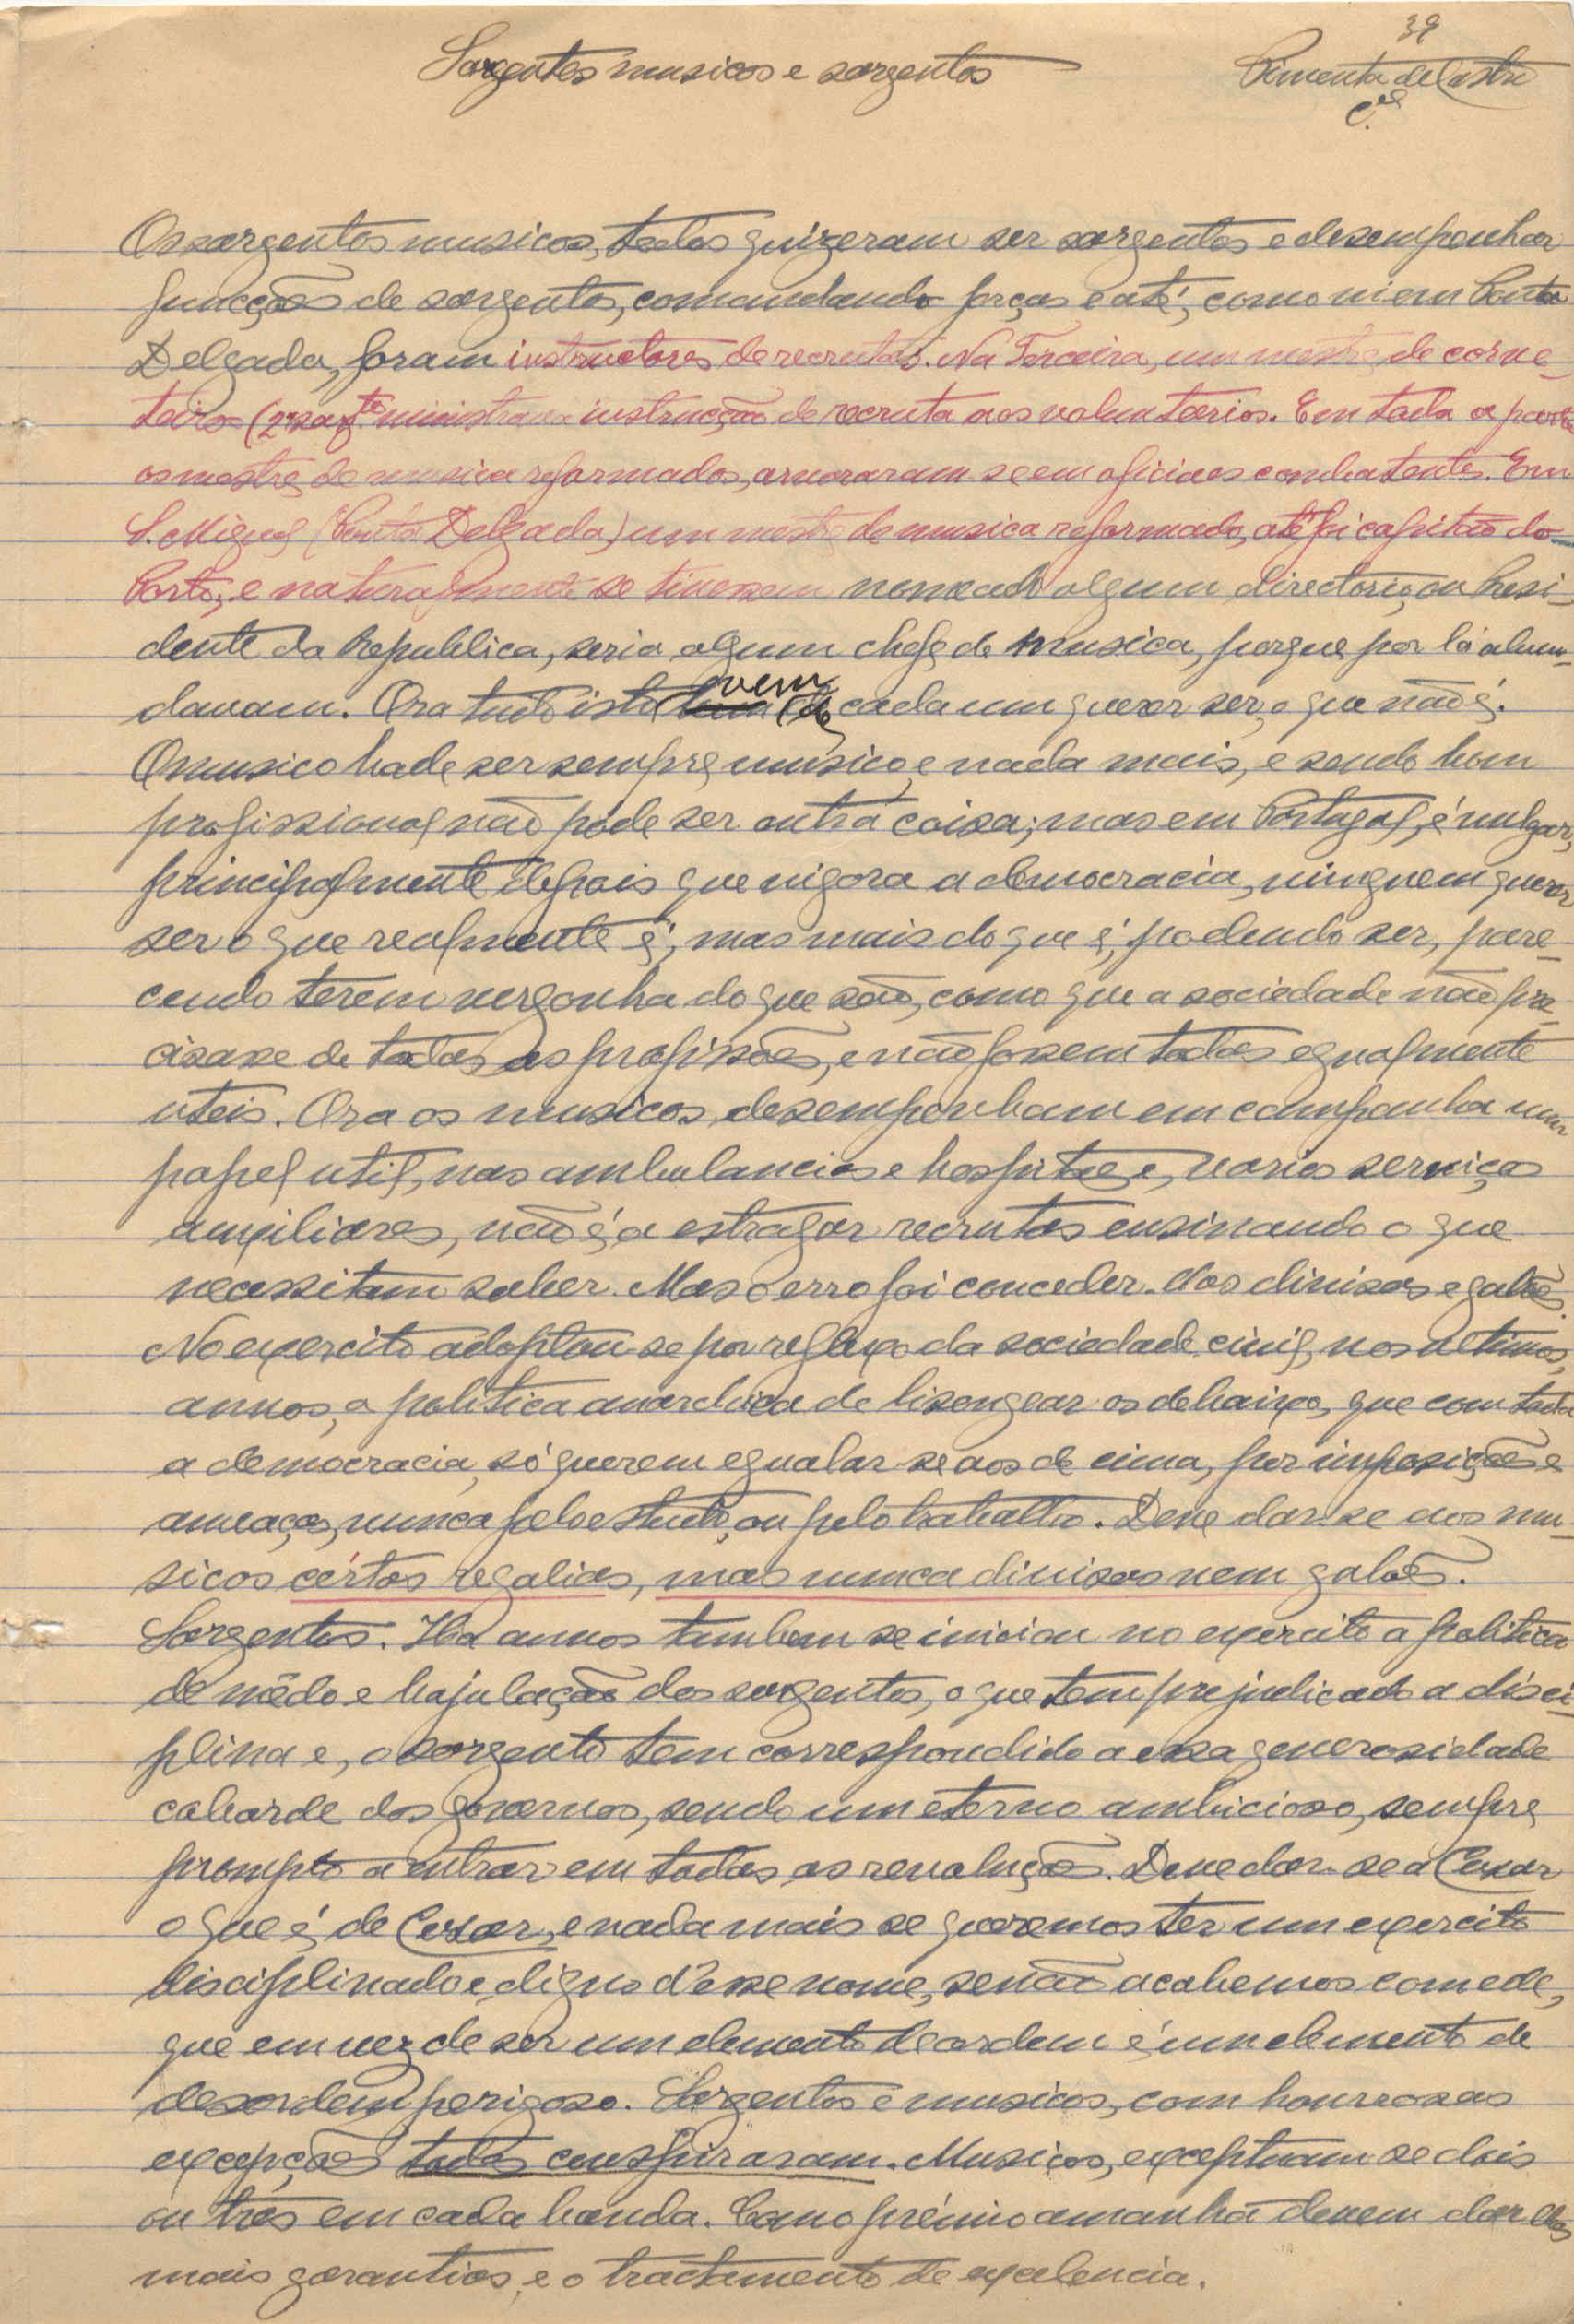 39
Sargentos musicos e sargentos
Pimenta de Castro
C.el
Os sargentos musicos, todos quizeram ser sargentos e desempenhar
funcções de sargento, comandando forças e até, como vi em Ponta
Delgada, foram instructores de recrutas. Na Terceira, um mestre de corne-
teiros (2º sargto ministrava instrucção de recruta aos voluntarios. Em toda a parte
os mestres de musica reformados, arvoraram se em oficiaes combatentes. Em
S. Miguel (Ponta Delgada) um mestre de musica reformado, até foi capitão do
Porto; e naturalmente se tivessem nomeado algum directorio, ou Presi-
dente da Republica, seria algum chefe de musica, porque por lá abun-
davam. Ora tudo isto vem de cada um querer ser, o que não é.
O musico hade ser sempre musico e nada mais, e sendo bom
profissional não pode ser outra coisa; mas em Portugal, é vulgar,
principalmente depois que vigora a democracia, ninguem querer
ser o que realmente é, mas mais do que é, podendo ser, pare-
cendo terem vergonha do que são, como que a sociedade não pre-
cisasse de todas as profissões, e não fossem todas egualmente
uteis. Ora os musicos, desempenham em campanha um
papel util, nas ambulancias e hospitaes e, varios serviços
auxiliares, não é a estragar recrutas ensinando o que
necessitam saber. Mas o erro foi conceder-lhos divisas e galões.
No exercito adoptou-se por reflexo da sociedade civil, nos ultimos,
annos, a politica anarchica de lisongear os debaixo, que com toda
a democracia, só querem egualar-se aos de cima, por imposição e
ameaças, nunca pelo estudo, ou pelo trabalho. Deve dar-se aos mu-
sicos cértas regalias, mas nunca divisas nem galões.
Sargentos. Ha annos tambem se iniciou no exercito a politica
de mêdo e bajulação dos sargentos, o que tem prejudicado a disci-
plina e, o sargento tem correspondido a essa generosidade
cobarde dos governos, sendo um eterno ambicioso, sempre
prompto a entrar em todas as revoluções. Deve dar-se a Cesar
o que é de Cesar, e nada mais se queremos ter um exercito
disciplinado e, digno d'esse nome, senão acabemos com ele,
que em vez de ser um elemento de ordem é um elemento de
desordem perigoso. Sargentos e musicos, com honrosas
excepções todos conspiraram. Musicos, exceptuam-se dois
ou três em cada banda. Como prémio amanhã devem dar-lhes
mais garantias, e o tractamento de excelencia.